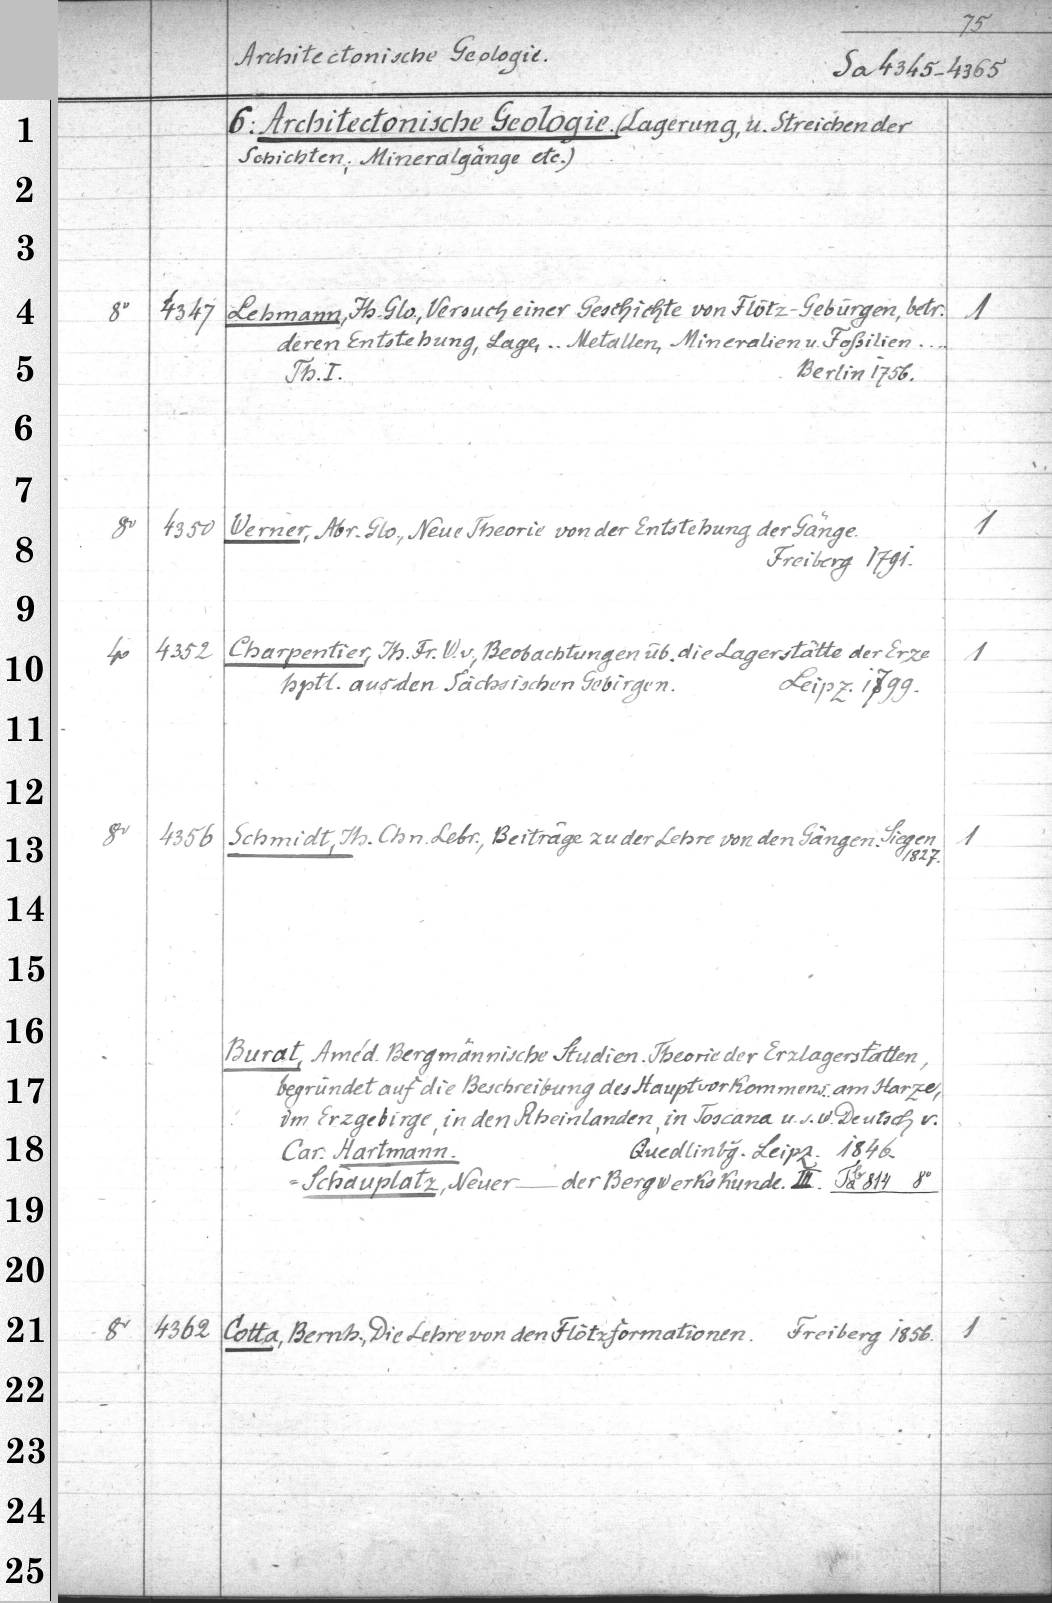 75
Architectonische Geologie. Sa 4345-4365
1 6: Architectonische Geologie. (Lagerung, u. Streichen der
Schichten, Mineralgänge etc.)
2
3
4 8° 4347 Lehmann, Jh. Glo., Versuch einer Geschichte von Flötz-Gebürgen, betr. 1
deren Entstehung, Lage, .. Metallen, Mineralien u. Foßilien ...
5 Th. I. Berlin 1756.
6
7
8° 4350 Werner, Abr. Glo., Neue Theorie von der Entstehung der Gänge. 1
8 Freiberg 1791.
9
4° 4352 Charpentier, Jh. Fr. W. v., Beobachtungen üb. die Lagerstätte der Erze 1
10 hptl. aus den Sächsischen Gebirgen. Leipz. 1799.
11
12
13 8° 4356 Schmidt, Jh. Chn. Lebr., Beiträge zu der Lehre von den Gängen. Siegen 1
1827.
14
15
16
Burat, Améd. Bergmännische Studien. Theorie der Erzlagerstätten,
17 begründet auf die Beschreibung des Hauptvorkommens am Harze,
im Erzgebirge, in den Rheinlanden, in Toscana u. s. w. Deutsch v.
18 Car. Hartmann. Quedlinbg. Leipz. 1846
= Schauplatz, Neuer — der Bergwerkskunde. III. 814 8°
19
20
21 8° 4362 Cotta, Bernh., Die Lehre von den Flötzformationen. Freiberg 1856. 1
22
23
24
25